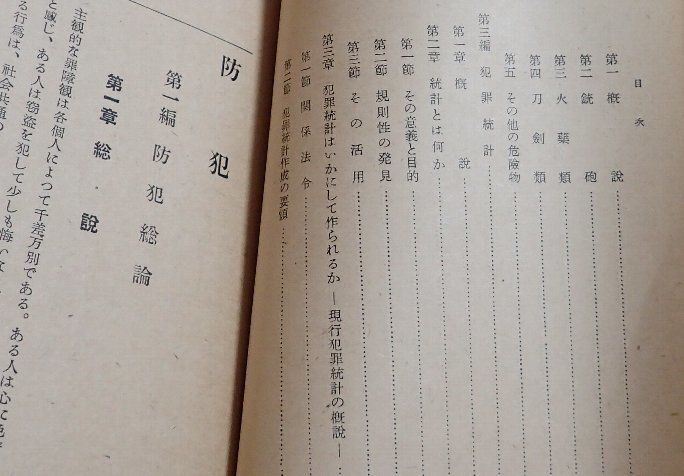 目次
第一 概説
第二 銃砲
第三 火薬類
第四 刀剣類
第五 その他の危險物
第三編 犯罪統計
第一章 概説
第二章 統計とは何か
第一節 その意義と目的
第二節 規則性の発見
第三節 その活用
第三章 犯罪統計はいかにして作られるか ―現行犯罪統計の概説―
第一節 関係法令
第二節 犯罪統計作成の要領
防犯
第一編 防犯総論
第一章 総説
主観的な罪障観は各個人によつて千差万別である。ある人は心に
と感じ、ある人は窃盗を犯して少しも悔い
る行爲は、社会共通の